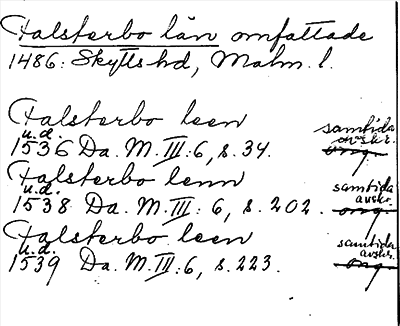 Falsterbo län omfattade
1486: Skytts hd, Malm. l.
Falsterbo leen samtida
u.d. avskr.
1536 Da. M. III: 6, s. 34. orig.
Falsterbo lenn samtida
u.d. avskr.
1538 Da. M. III: 6, s. 202. orig.
Falsterbo leen samtida
u.d. avskr.
1539 Da. M. III: 6, s. 223. orig.